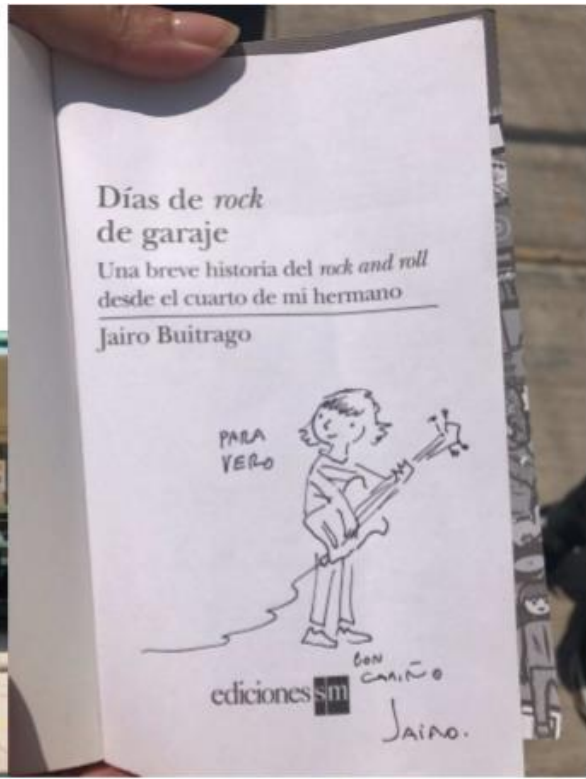 Días de rock
de garaje
Una breve historia del rock and roll
desde el cuarto de mi hermano
Jairo Buitrago
PARA
VERO
CON
CARIÑO
ediciones sm
JAIRO.